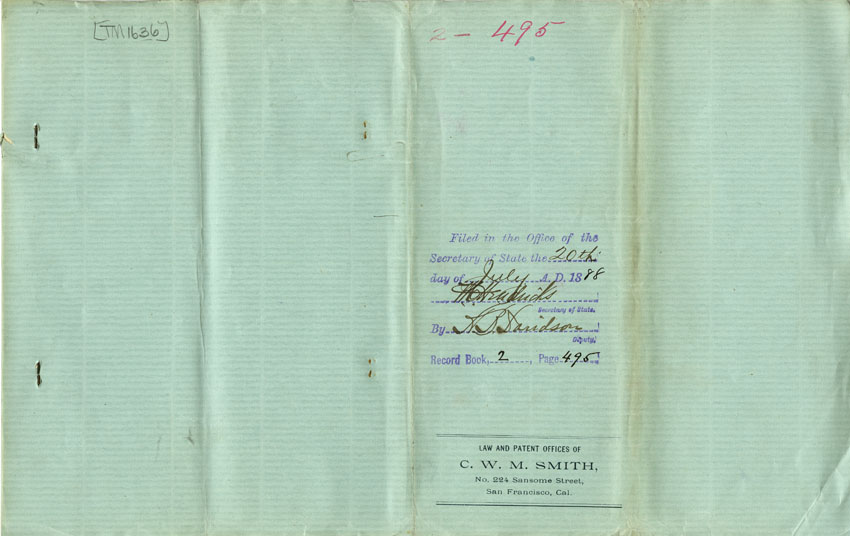 [TM1636]
2 - 495
Filed in the Office of the
Secretary of State the 20th
day of July A. D. 1888
W. C. Hendricks
Secretary of State.
By H. B. Davidson
Deputy.
Record Book, 2, Page 495
LAW AND PATENT OFFICES OF
C. W. M. SMITH,
No. 224 Sansome Street,
San Francisco, Cal.